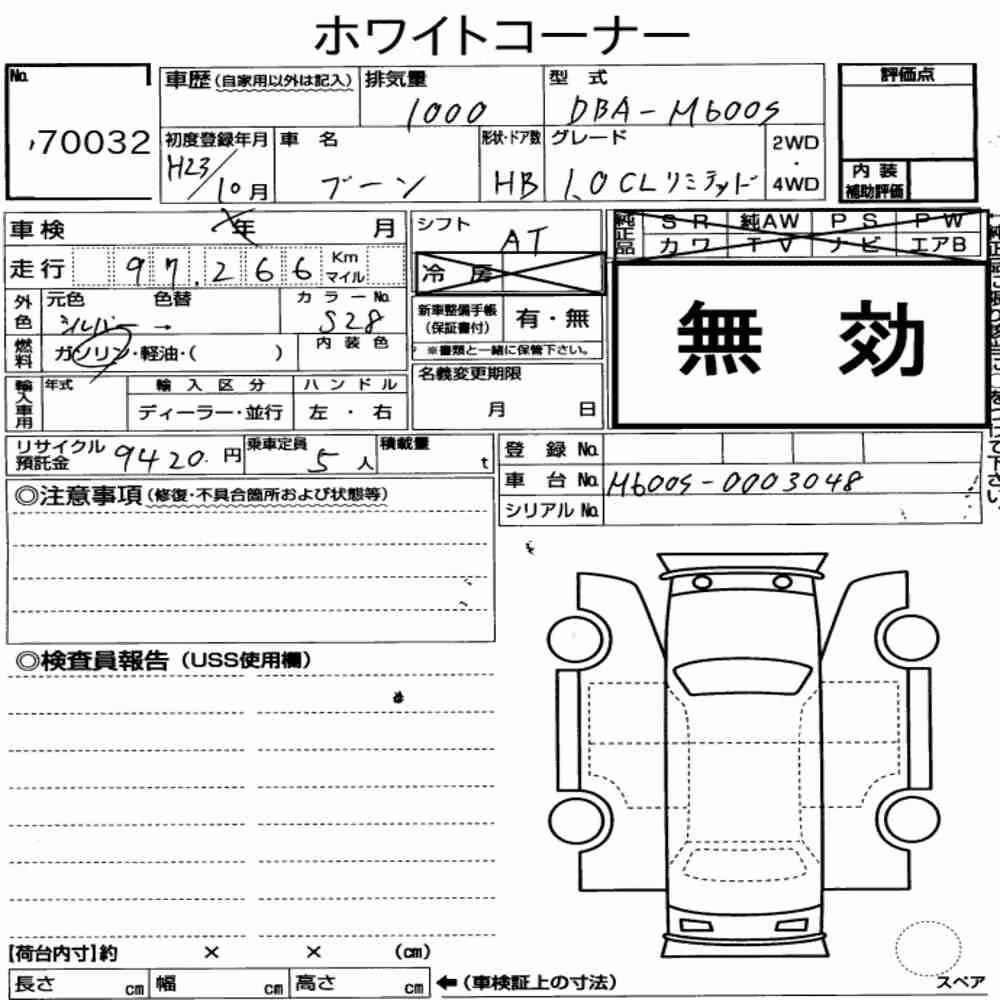 ホワイトコーナー
No. 70032
車歴(自家用以外は記入) 排気量 1000 型式 DBA-M600S 評価点
初度登録年月 H23/10月 車名 ブーン 形状・ドア数 HB グレード 1.0CLリミテッド 2WD・4WD
内装補助評価
車検 年 月 シフト AT
純正品 SR 純AW PS PW
カワ TV ナビ エアB
走行 97,266 Km マイル 冷房
外色 元色 シルバー → 色替 カラーNo. S28
新車整備手帳(保証書付) 有・無
※書類と一緒に保管下さい。
無効
燃料 ガソリン・軽油・( ) 内装色
輸入車用 年式 輸入区分 ハンドル
ディーラー・並行 左・右
名義変更期限 月 日
リサイクル預託金 9420円 乗車定員 5人 積載量 t
登録No.
車台No. M600S-0003048
シリアルNo.
◎注意事項(修復・不具合箇所および状態等)
◎検査員報告(USS使用欄)
[荷台内寸]約 × × (cm)
長さ cm 幅 cm 高さ cm ←(車検証上の寸法)
スペア